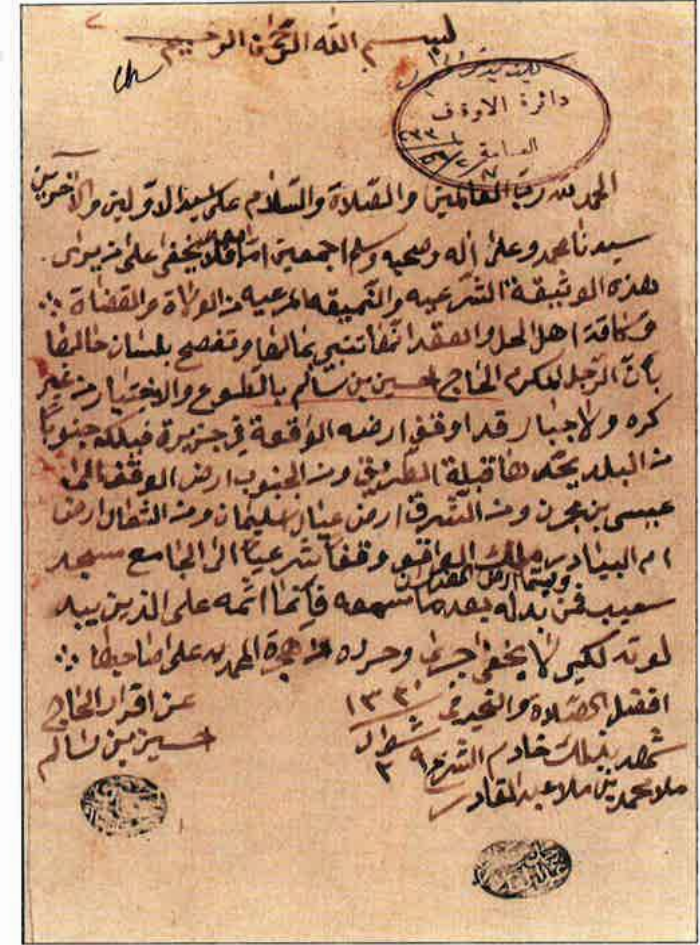 بسم الله الرحمن الرحيم
دائرة الاوقف
العامة
الحمد لله رب العالمين والصلاة والسلام على سيد الاولين والآخرين
سيدنا محمد وعلى آله وصحبه وسلم اجمعين اما فلا يخفى على من يرى
هذه الوثيقة الشرعيه والنميقه المرعيه من الولاة والقضاة
وكافة اهل الحل والعقد انها تنبي بمالها وتفصح بلسان حالها
بأن الرجل المكرم الحاج حسين بن سالم بالطوع والاختيار من غير
كره ولا جبار قد اوقف ارضه الواقعة في جزيرة فيلكه جنوبا
من البلد يحدها قبلة ومن الجنوب ارض الوقف
عيسى بن ومن الشرق ارض عيال سليمان ومن الشمال ارض
ام البيادر ملك الواقف وقفا شرعيا الى الجامع مسجد
شعيب فمن بدله بعد ما سمعه فإنما اثمه على الذين يبد
لونه لكي لا يخفى جرى وحرر هجرة على صاحبها
افضل الصلاة والتحية في ١٣٣١
عن اقرار الحاج
حسين بن سالم
شوال
شهد بذلك خادم الشرع
ملا محمد بن ملا عبد القادر